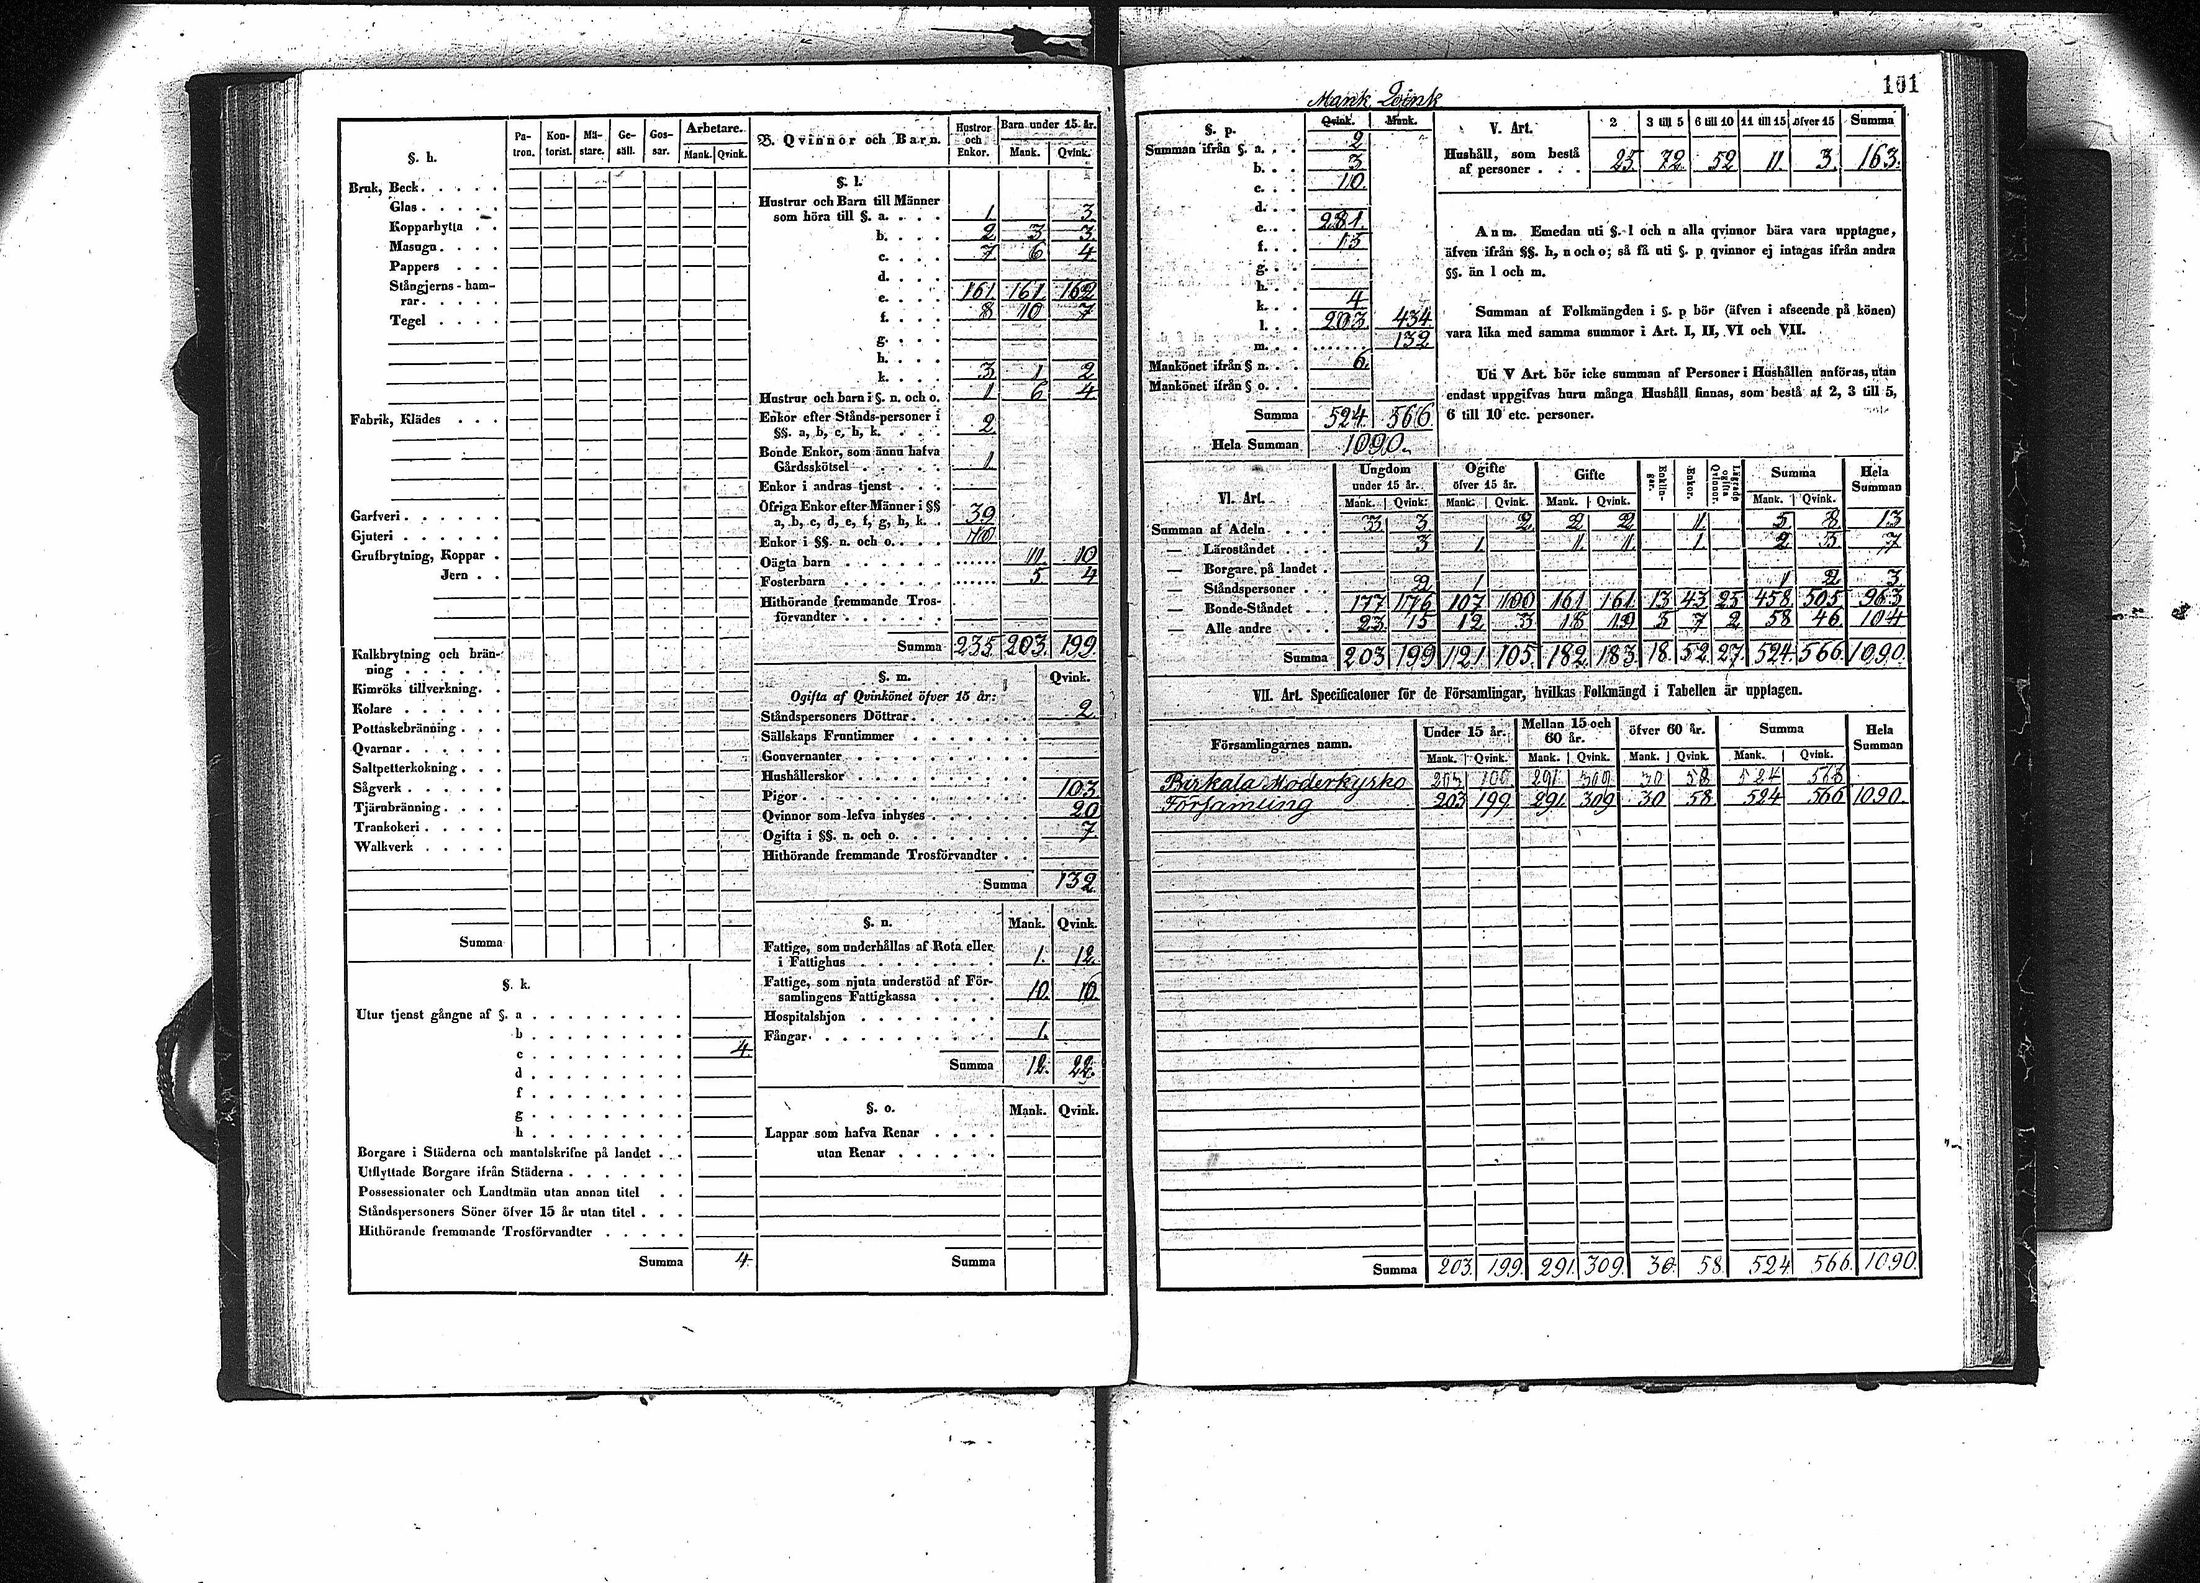 101
§. h.
Pa-tron. Kon-torist. Mä-stare. Ge-säll. Gos-sar. Arbetare. Mank. Qvink.
Bruk, Beck
Glas
Kopparhytta
Masugn
Pappers
Stångjerns-ham-
rar
Tegel
Fabrik, Klädes
Garfveri
Gjuteri
Grufbrytning, Koppar
Jern
Kalkbrytning och brän-
ning
Kimröks tillverkning.
Kolare
Pottaskebränning
Qvarnar
Saltpetterkokning
Sågverk
Tjärnbränning
Trankokeri
Walkverk
Summa
§. k.
Utur tjenst gångne af §. a
b
c 4
d
f
g
h
Borgare i Städerna och mantalskrifne på landet
Utflyttade Borgare ifrån Städerna
Possessionater och Landtmän utan annan titel
Ståndspersoners Söner öfver 15 år utan titel
Hithörande fremmande Trosförvandter
Summa 4.
B. Qvinnor och Barn. Hustror och Enkor. Barn under 15. år. Mank. Qvink.
§. l.
Hustrur och Barn till Männer
som höra till §. a. 1 3
b. 2 3 3
c. 7 6 4
d.
e. 161 161 162
f. 8 10 7
g.
h.
k. 3 1 2
Hustrur och barn i §. n. och o. 1 6 4
Enkor efter Stånds-personer i
§§. a, b, c, h, k. 2
Bonde Enkor, som ännu hafva
Gårdsskötsel 1
Enkor i andras tjenst
Öfriga Enkor efter Männer i §§
a, b, c, d, e, f, g, h, k. 39
Enkor i §§. n. och o. 10
Oägta barn 11. 10
Fosterbarn 5 4
Hithörande fremmande Tros-
förvandter
Summa 235 203. 199.
§. m. Qvink.
Ogifta af Qvinkönet öfver 15 år:
Ståndspersoners Döttrar 2
Sällskaps Fruntimmer
Gouvernanter
Hushållerskor
Pigor 103
Qvinnor som lefva inhyses 20
Ogifta i §§. n. och o. 7
Hithörande fremmande Trosförvandter
Summa 132
§. n. Mank. Qvink.
Fattige, som underhållas af Rota eller
i Fattighus 1. 12.
Fattige, som njuta understöd af För-
samlingens Fattigkassa 10. 10.
Hospitalshjon
Fångar 1.
Summa 12. 22.
§. o. Mank. Qvink.
Lappar som hafva Renar
utan Renar
Summa
Mank Qvink
§. p. Qvink. Mank.
Summan ifrån §. a. 2
b. 3
c. 10.
d.
e. 281.
f. 15
g.
h.
k. 4
l. 203. 434.
m. 132
Mankönet ifrån § n. 6.
Mankönet ifrån § o.
Summa 524. 566.
Hela Summan 1090.
V. Art. 2 3 till 5 6 till 10 11 till 15 öfver 15 Summa
Hushåll, som bestå
af personer 25. 72. 52 11. 3. 163.
Anm. Emedan uti §. l och n alla qvinnor bära vara upptagne,
äfven ifrån §§. h, n och o; så få uti §. p qvinnor ej intagas ifrån andra
§§. än l och m.
Summan af Folkmängden i §. p bör (äfven i afseende på könen)
vara lika med samma summor i Art. I, II, VI och VII.
Uti V Art. bör icke summan af Personer i Hushållen anföras, utan
endast uppgifvas huru många Hushåll finnas, som bestå af 2, 3 till 5,
6 till 10 etc. personer.
VI. Art. Ungdom under 15 år. Ogifte öfver 15 år. Gifte Enklin-gar. Enkor. Lägrade ogifta Qvinnor. Summa Hela Summan
Mank. Qvink. Mank. Qvink. Mank. Qvink. Mank. Qvink.
Summan af Adeln 3 3 2 2 2 1. 5 8 13
— Läroståndet 3 1 1. 1. 1. 2 5 7
— Borgare på landet
— Ståndspersoner 2 1 1 2 3
— Bonde-Ståndet 177 176 107 100 161 161 13 43 25 458 505 963
— Alle andre 23 15 12 3 18 19 5 7 2 58 46 104
Summa 203 199 121 105. 182. 183. 18. 52. 27. 524. 566 1090.
VII. Art. Specificatoner för de Församlingar, hvilkas Folkmängd i Tabellen är upptagen.
Församlingarnes namn. Under 15 år. Mellan 15 och 60 år. öfver 60 år. Summa Hela Summan
Mank. Qvink. Mank. Qvink. Mank. Qvink. Mank. Qvink.
Birkala Moderkyrko 203 291. 309 30 58 524
Församling 203 199 291. 309 30 58 524 566 1090.
Summa 203. 199. 291. 309. 30. 58. 524. 566. 1090.